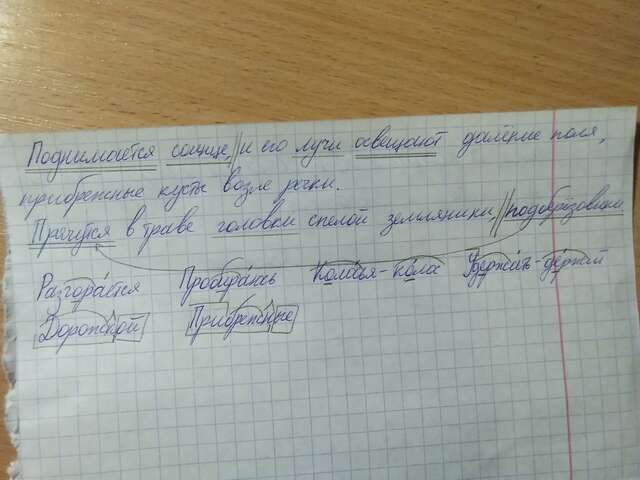 Поднимается солнце, // и его лучи освещают далёкие поля,
прибрежные кусты возле речки.
Прячутся в траве головки спелой земляники, // подобразовики
Разгорается Пробираюсь Колосья - колос Держать - держит
Дорожкой Прибрежные